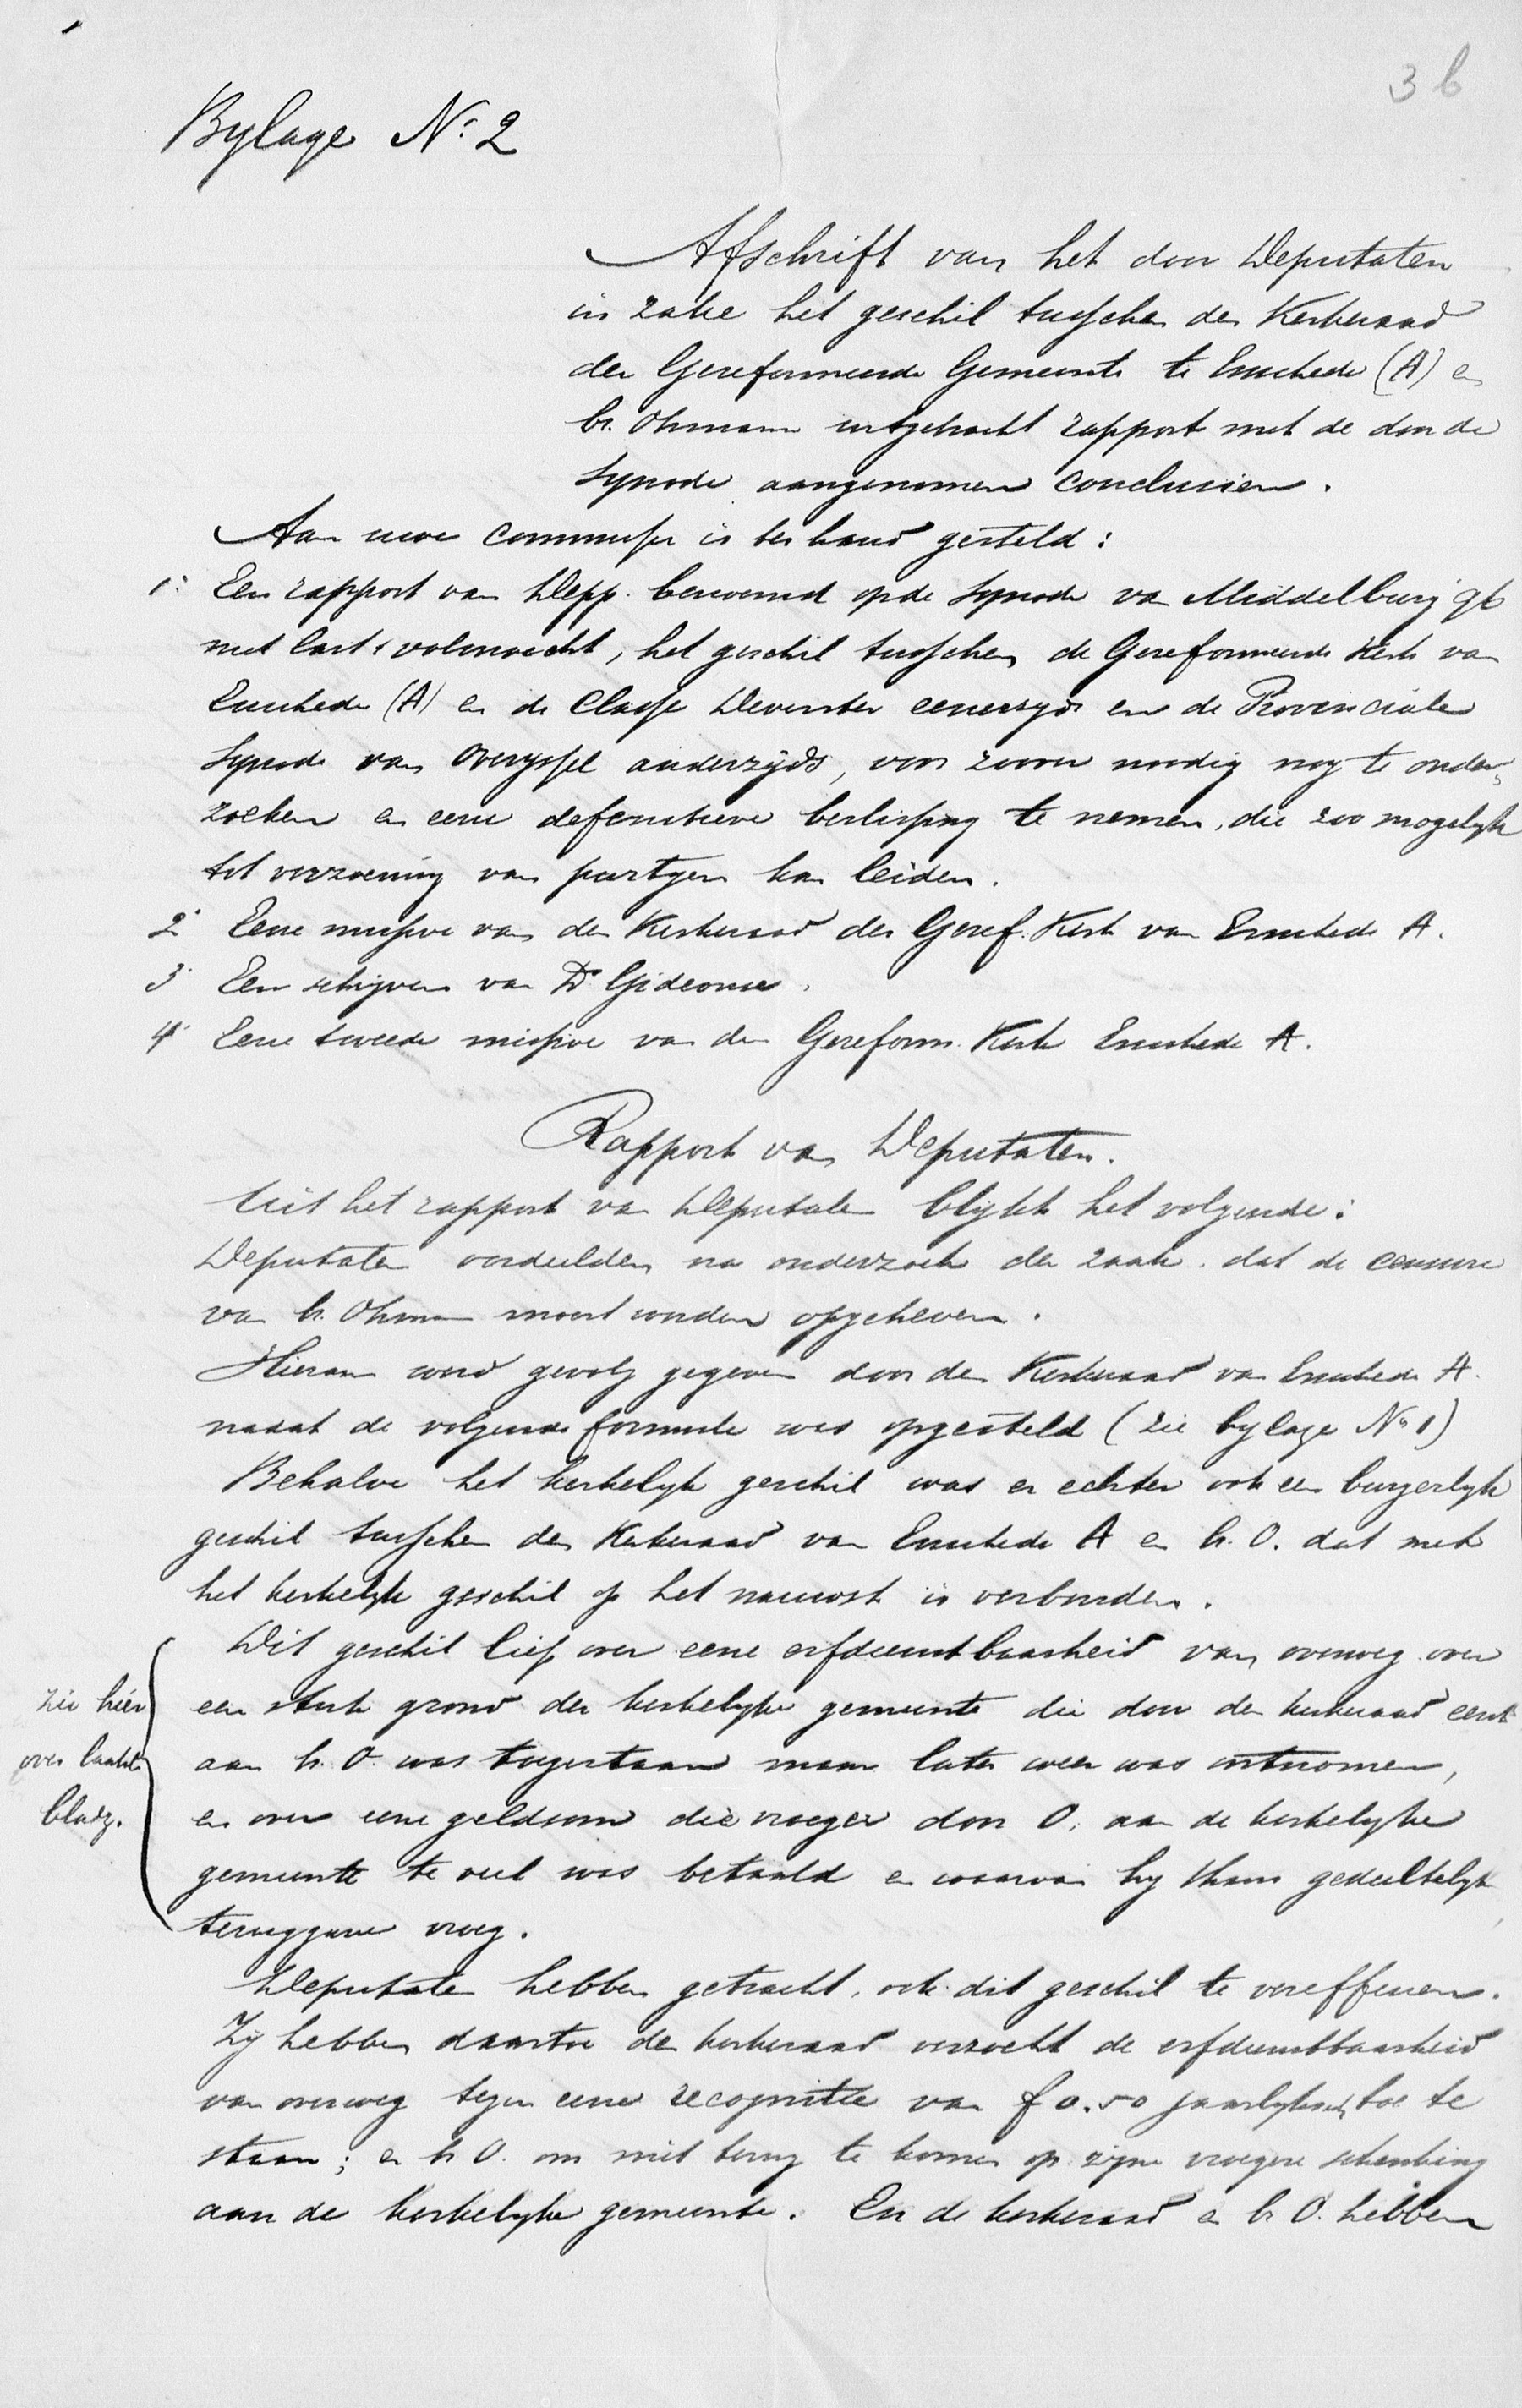 3 b
Bylage No. 2
Afschrift van het door Deputaten
in zake het geschil tusschen den Kerkeraad
der Gereformeerde Gemeente te Enschede (A) en
br. Ohmann uitgebracht rapport met de door de
Synode aangenomen conclusien.
Aan uwe commissie is ter hand gesteld:
1o. Een rapport van Depp. benoemd op de Synode van Middelburg 96
met last & volmacht, het geschil tusschen de Gereformeerde Kerk van
Enschede (A) en de Classe Deventer eenerzyds en de Provinciale
Synode van Overyssel anderzijds, voor zoover noodig nog te onder-
zoeken en eene definitieve beslissing te nemen, die zoo mogelyk
tot verzoening van partyen kan leiden.
2o Eene missive van den Kerkeraad der Geref. Kerk van Enschede A.
3o Een schrijven van Ds Gideonse.
4o Eene tweede missive van den Gereform. Kerk Enschede A.
Rapport van Deputaten.
Uit het rapport van Deputaten blykt het volgende:
Deputaten oordeelden na onderzoek der zaak, dat de censuur
van br. Ohmann moest worden opgeheven.
Hieraan werd gevolg gegeven door den Kerkeraad van Enschede A.
nadat de volgende formule was opgesteld (zie bylage No 1)
Behalve het kerkelyk geschil was er echter ook een burgerlyk
geschil tusschen den Kerkeraad van Enschede A en br. O. dat met
het kerkelyk geschil op het nauwst is verbonden.
Dit geschil liep over eene erfdienstbaarheid van overweg over
een stuk grond der kerkelyke gemeente die door den kerkeraad eerst
aan br. O. was toegestaan maar later weer was ontnomen,
en over eene geldsom die vroeger door O. aan de kerkelyke
gemeente te veel was betaald en waarvan hy thans gedeeltelyk
teruggave vroeg.
zie hier
over laatste
bladz.
Deputaten hebben getracht, ook dit geschil te vereffenen.
Zij hebben daartoe den kerkeraad verzocht de erfdienstbaarheid
van overweg tegen eene recognitie van f 0.50 jaarlyksch toe te
staan; en br O. om niet terug te komen op zijne vroegere schenking
aan de kerkelyke gemeente. En de kerkeraad en br O. hebben